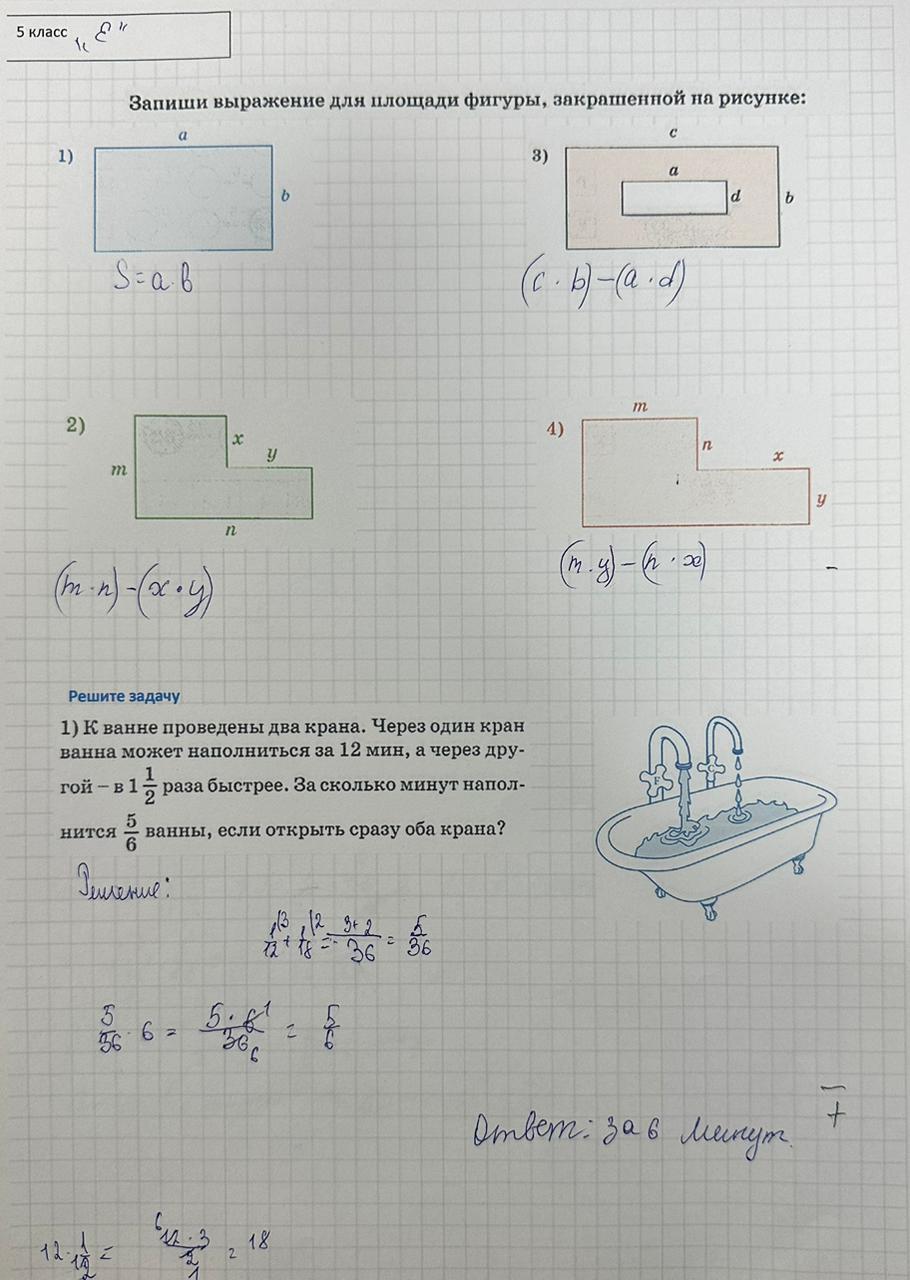 5 класс „Е"
Запиши выражение для площади фигуры, закрашенной на рисунке:
1)
a
b
S=a·b
3)
c
a
d
b
(c · b) – (a · d)
2)
m
x
y
n
(m · n) – (x · y)
4)
m
n
x
y
(m · y) – (n · x)
–
Решите задачу
1) К ванне проведены два крана. Через один кран
ванна может наполниться за 12 мин, а через дру-
гой – в 1 1/2 раза быстрее. За сколько минут напол-
нится 5/6 ванны, если открыть сразу оба крана?
F
C
Решение:
1/12 |3 + 1/18 |2 = 3+2/36 = 5/36
5/36 · 6 = 5 · 6 1/36 6 = 5/6
–
+
Ответ: за 6 минут.
6 12 · 3/2 1 = 18